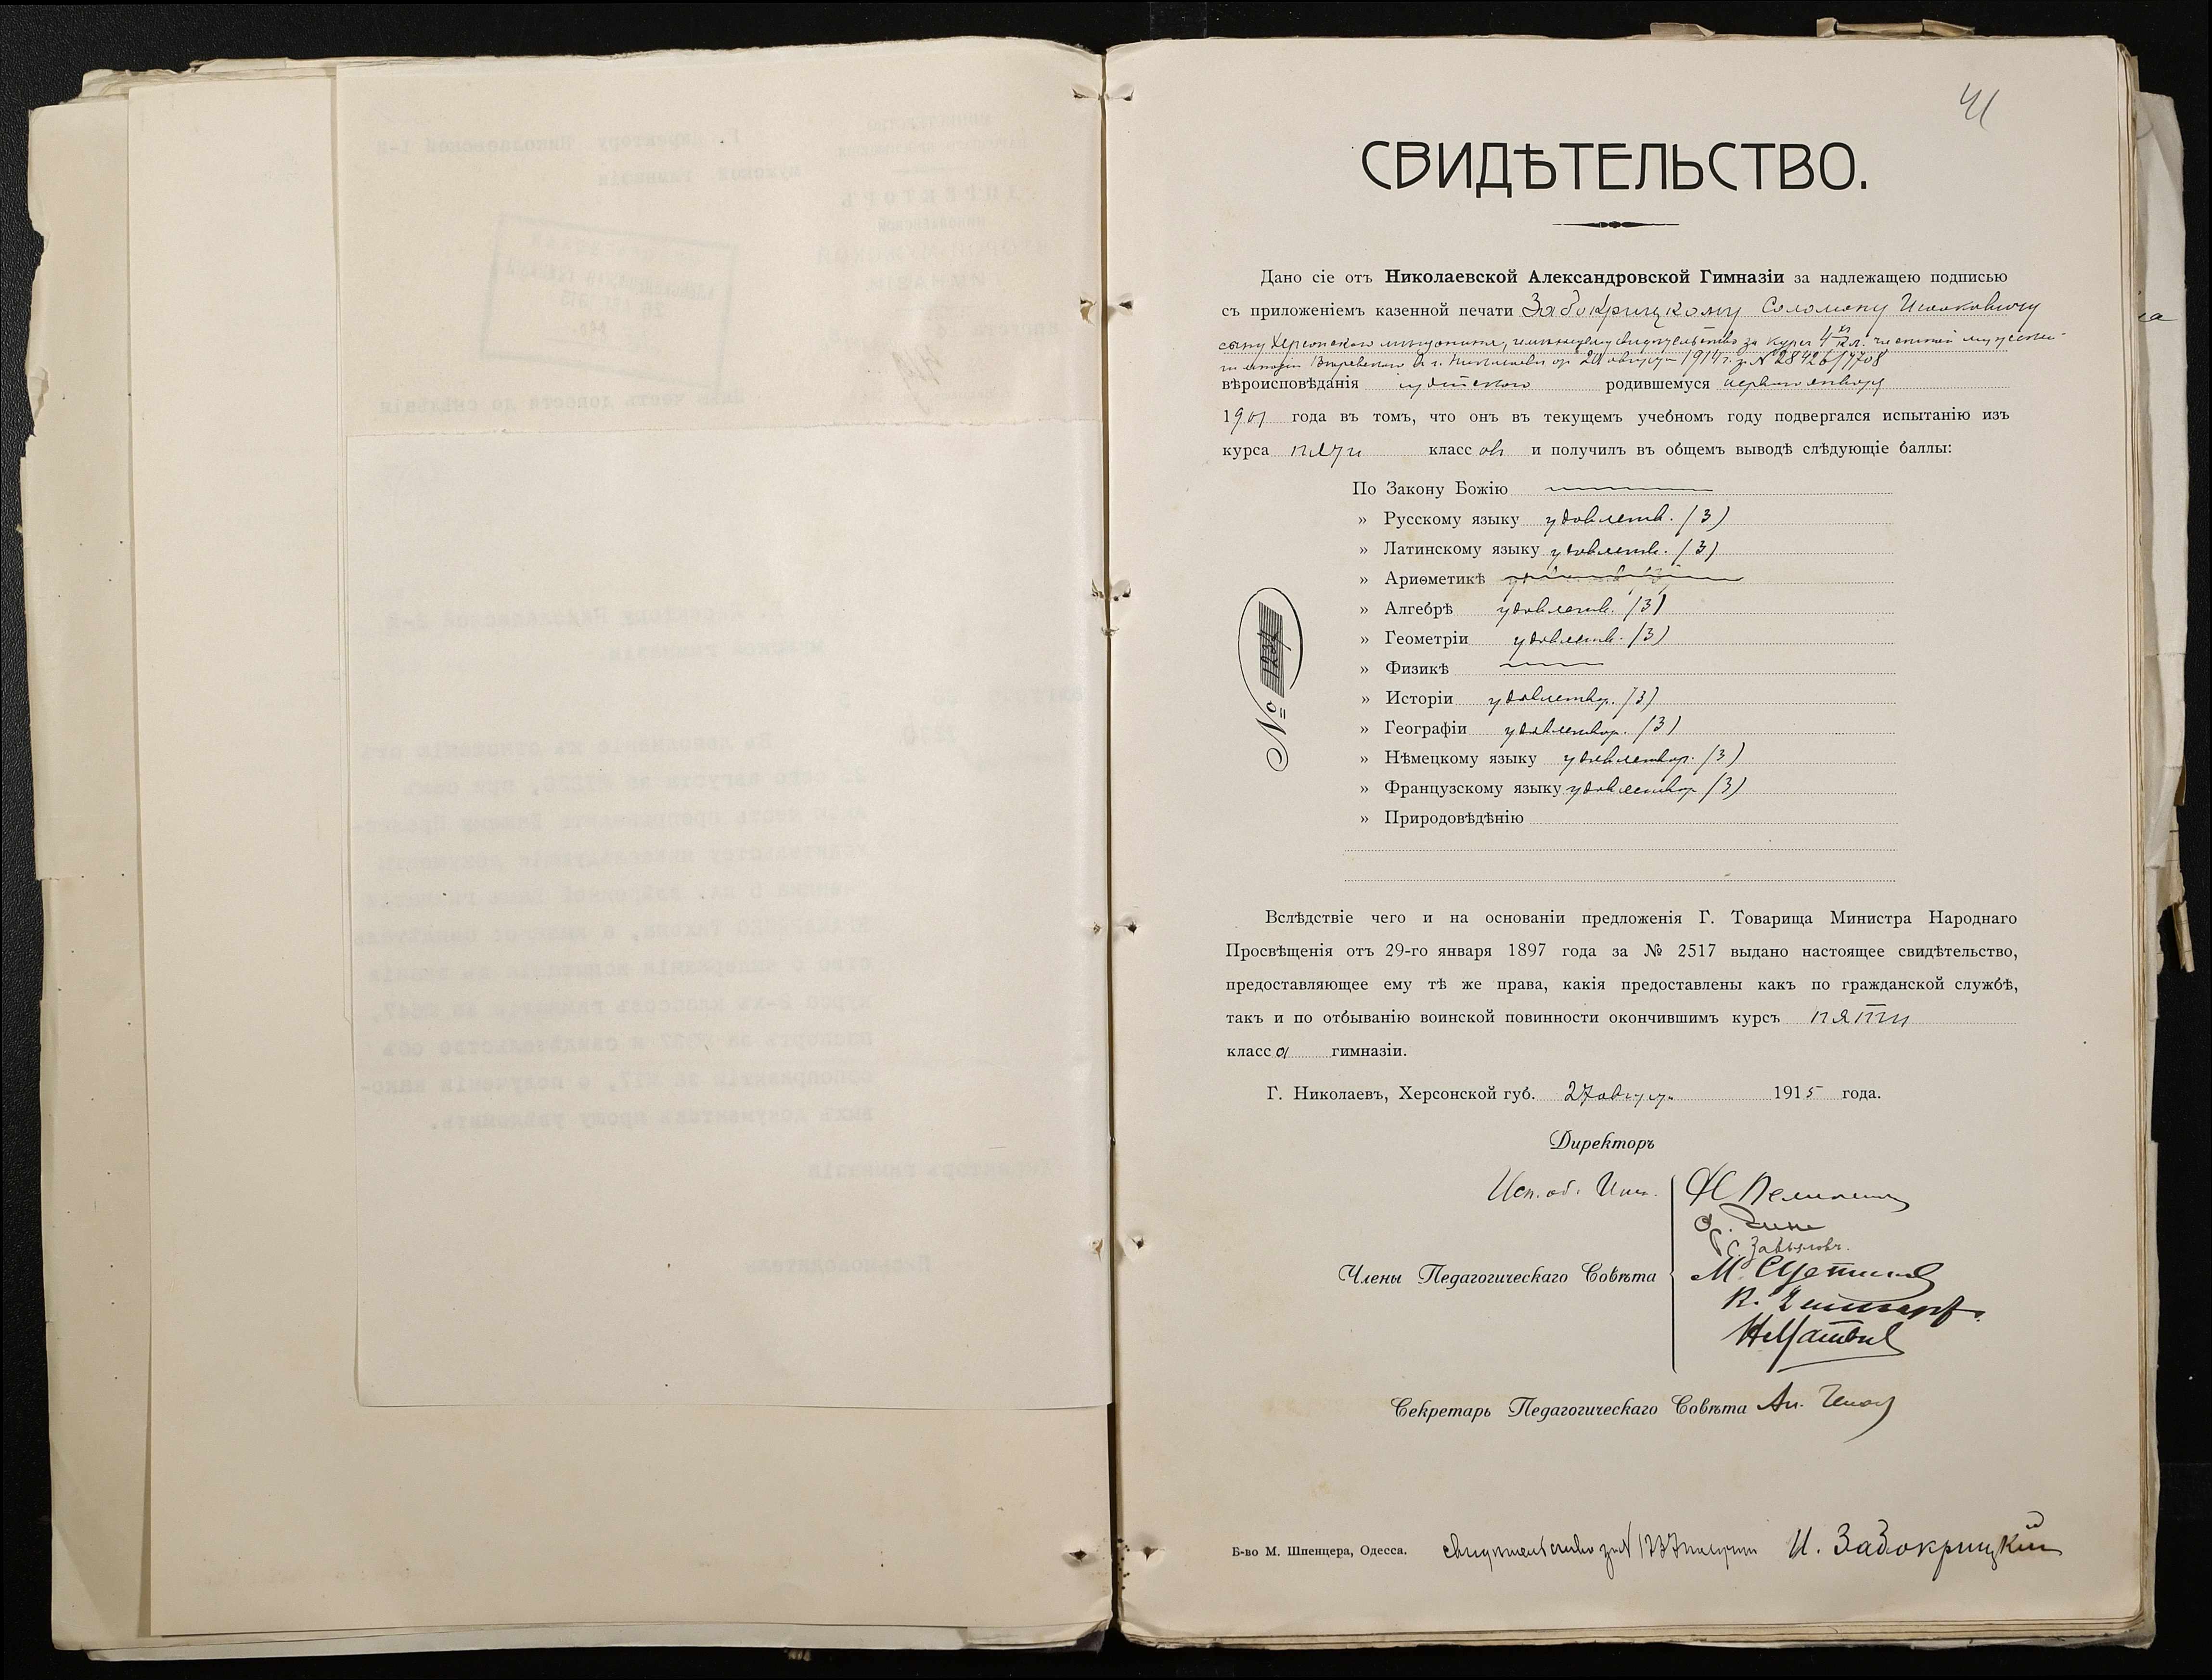 41
СВИДѢТЕЛЬСТВО.
Дано сіе отъ Николаевской Александровской Гимназіи за надлежащею подписью
съ приложеніемъ казенной печати Забокрицкому Соломону Исааковичу
сыну Херсонскаго мѣщанина, имѣющему свидѣтельство за курсъ 4 кл. частной мужской
гимназіи въ г. Николаевѣ от 20 августа 1914 г. за № 28426/7708
вѣроисповѣданія іудейскаго родившемуся перваго января
1901 года въ томъ, что онъ въ текущемъ учебномъ году подвергался испытанію изъ
курса пяти классовъ и получилъ въ общемъ выводѣ слѣдующіе баллы:
По Закону Божію
» Русскому языку удовлетв. (3)
» Латинскому языку удовлетв. (3)
» Ариѳметикѣ
» Алгебрѣ удовлетв. (3)
» Геометріи удовлетв. (3)
» Физикѣ
» Исторіи удовлетвор. (3)
» Географіи удовлетвор. (3)
» Нѣмецкому языку удовлетвор. (3)
» Французскому языку удовлетвор (3)
» Природовѣдѣнію
№ 1237
Вслѣдствіе чего и на основаніи предложенія Г. Товарища Министра Народнаго
Просвѣщенія отъ 29-го января 1897 года за № 2517 выдано настоящее свидѣтельство,
предоставляющее ему тѣ же права, какія предоставлены какъ по гражданской службѣ,
такъ и по отбыванію воинской повинности окончившимъ курсъ пяти
класса гимназіи.
Г. Николаевъ, Херсонской губ. 27 августа 1915 года.
Директоръ
Исп. об. Инсп.
С. Завьяловъ.
Члены Педагогическаго Совѣта
Секретарь Педагогическаго Совѣта Ан.
Б-во М. Шпенцера, Одесса. Свидѣтельство за № 1237 получил И. Забокрицкій